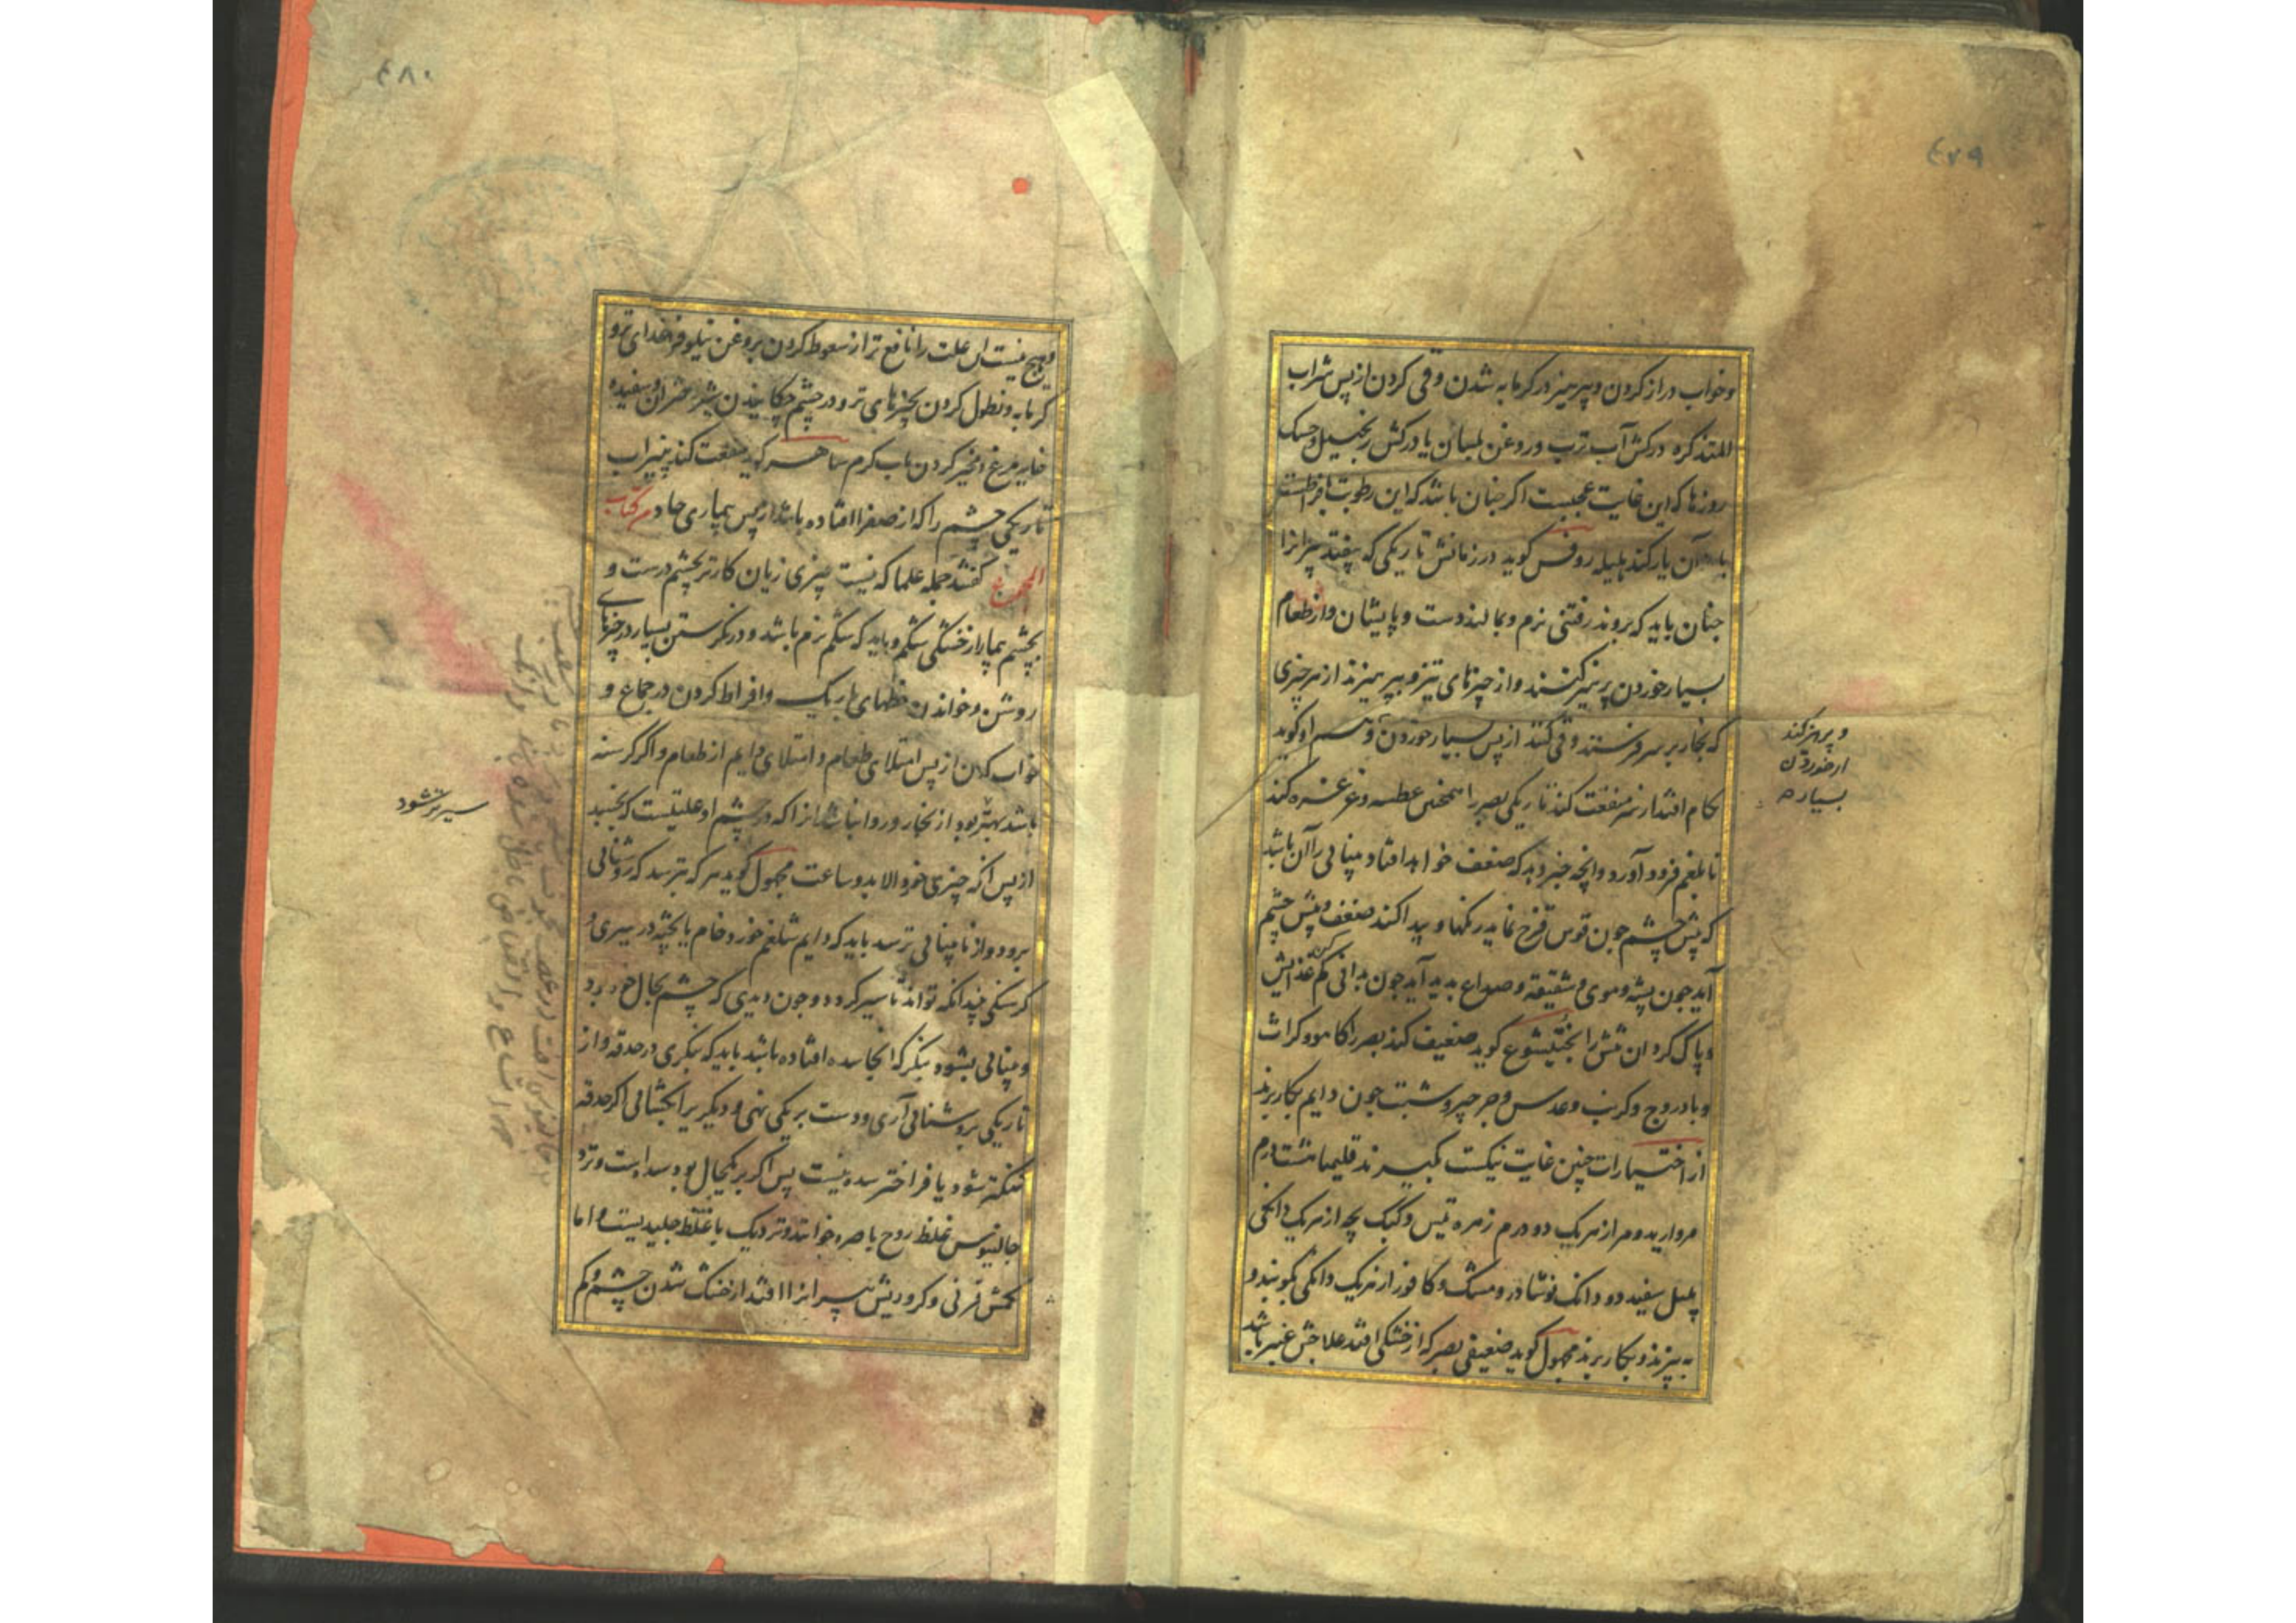 ٤٧٩
وخواب دراز کردن وپرهیز در کرمابه شدن وقی کردن از پس شراب
المتذکره درکش آب ترب وروغن بلسان یا درکش زنجبیل وحسک
روزها که این غایت عجبست اکر جنان باشد که این رطوبت بافراطست
با آن یار کند هلیله روفس کوید در زمانش تاریکی که بیفتد پیرانرا
جنان باید که بروند رفتنی نرم وبمالند دست وپایشان واز طعام
بسیار خوردن پرهیز کنند واز چیزهای تیز وبپرهیزند از هر چیزی
که بخار بر سر فرستند وقی کنند از پس بسیار خوردن وهم او کوید
کام افتد از نم منفعت کند تاریکی بصر را همچنین عطسه وغرغره کند
تا بلغم فرود آورد وانچه خبر دهد که ضعف خواهد افتاد بینائی را آن باشد
که پیش چشم جون قوس قزح نماید رنکها و پیدا کند ضعف وپیش چشم
آید جون پشه وموی وشقیقه وصداع بدید آید جون بدانی کم کن غذایش
وپاک کردان تنش را بختیشوع کوید ضعیف کند بصر را کاهو وکراث
وبادروج وکرنب وعدس وجرجیر وشبت جون دایم بکار برند
از اختیارات چنین غایت نیکست بکیرند قلیمیا هشت درم
مروارید ومر از هریک دو درم زهره تیس وکبک بچه از هریک دانکی
پلپل سفید دو دانک نوشادر ومشک وکافور از هریک دانکی بکوبند و
ببیزند وبکار برند مجهول کوید ضعیفی بصر که از خشکی افتد علاجش غیر باشد
وپرهیز کند
از خوردن
بسیار
٤٨٠
وهیچ نیست این علت را نافع تر از سعوط کردن بروغن نیلوفر وغذای تر و
کرمابه ونطول کردن بچیزهای تر ودر چشم چکانیدن شیر دختران وسفیده
خایه مرغ انجیر کردن باب کرم ساهر کوید منفعت کند پنیراب
تاریکی چشم را که از صفرا افتاده باشد از پس بیماری حاد من کتاب
المجموع کفتند جمله علما که نیست چیزی زیان کارتر بچشم درست و
بچشم بیمار از خشکی شکم وباید که شکم نرم باشد ودر نکرستن بسیار در چیزهای
روشن وخواندن خطهای باریک وافراط کردن در جماع و
خواب کردن از پس امتلای طعام وامتلای دایم از طعام واکر کرسنه
باشد بهتر بود از بخار وروا نباشد آنرا که در چشم او علتیست که بخسبد
از پس آنکه چیزی خورد الا بدو ساعت مجهول کوید هرکه بترسد که روشنائی
برود واز نابینائی ترسد باید که دایم شلغم خورد خام یا پخته در سیری و
کرسنکی چندانکه تواند تا سیر کردد وجون دیدی که چشم بحال خود بود
وبینائی بشود بنکر که آنجا سده افتاده باشد باید که بنکری در حدقه واز
تاریکی بروشنائی آری ودست بر یکی نهی ودیکر برانکشائی اکر حدقه
تنکتر شود یا فراختر سده نیست پس اکر بر یکحال بود سده است ونزد
جالینوس غلظ روح باصره خوانند ونزدیک با غلظ جلیدیست واما
کمش قرنی وکرو دیش پیرانرا افتد از خشک شدن چشم وکم
سیرتر شود